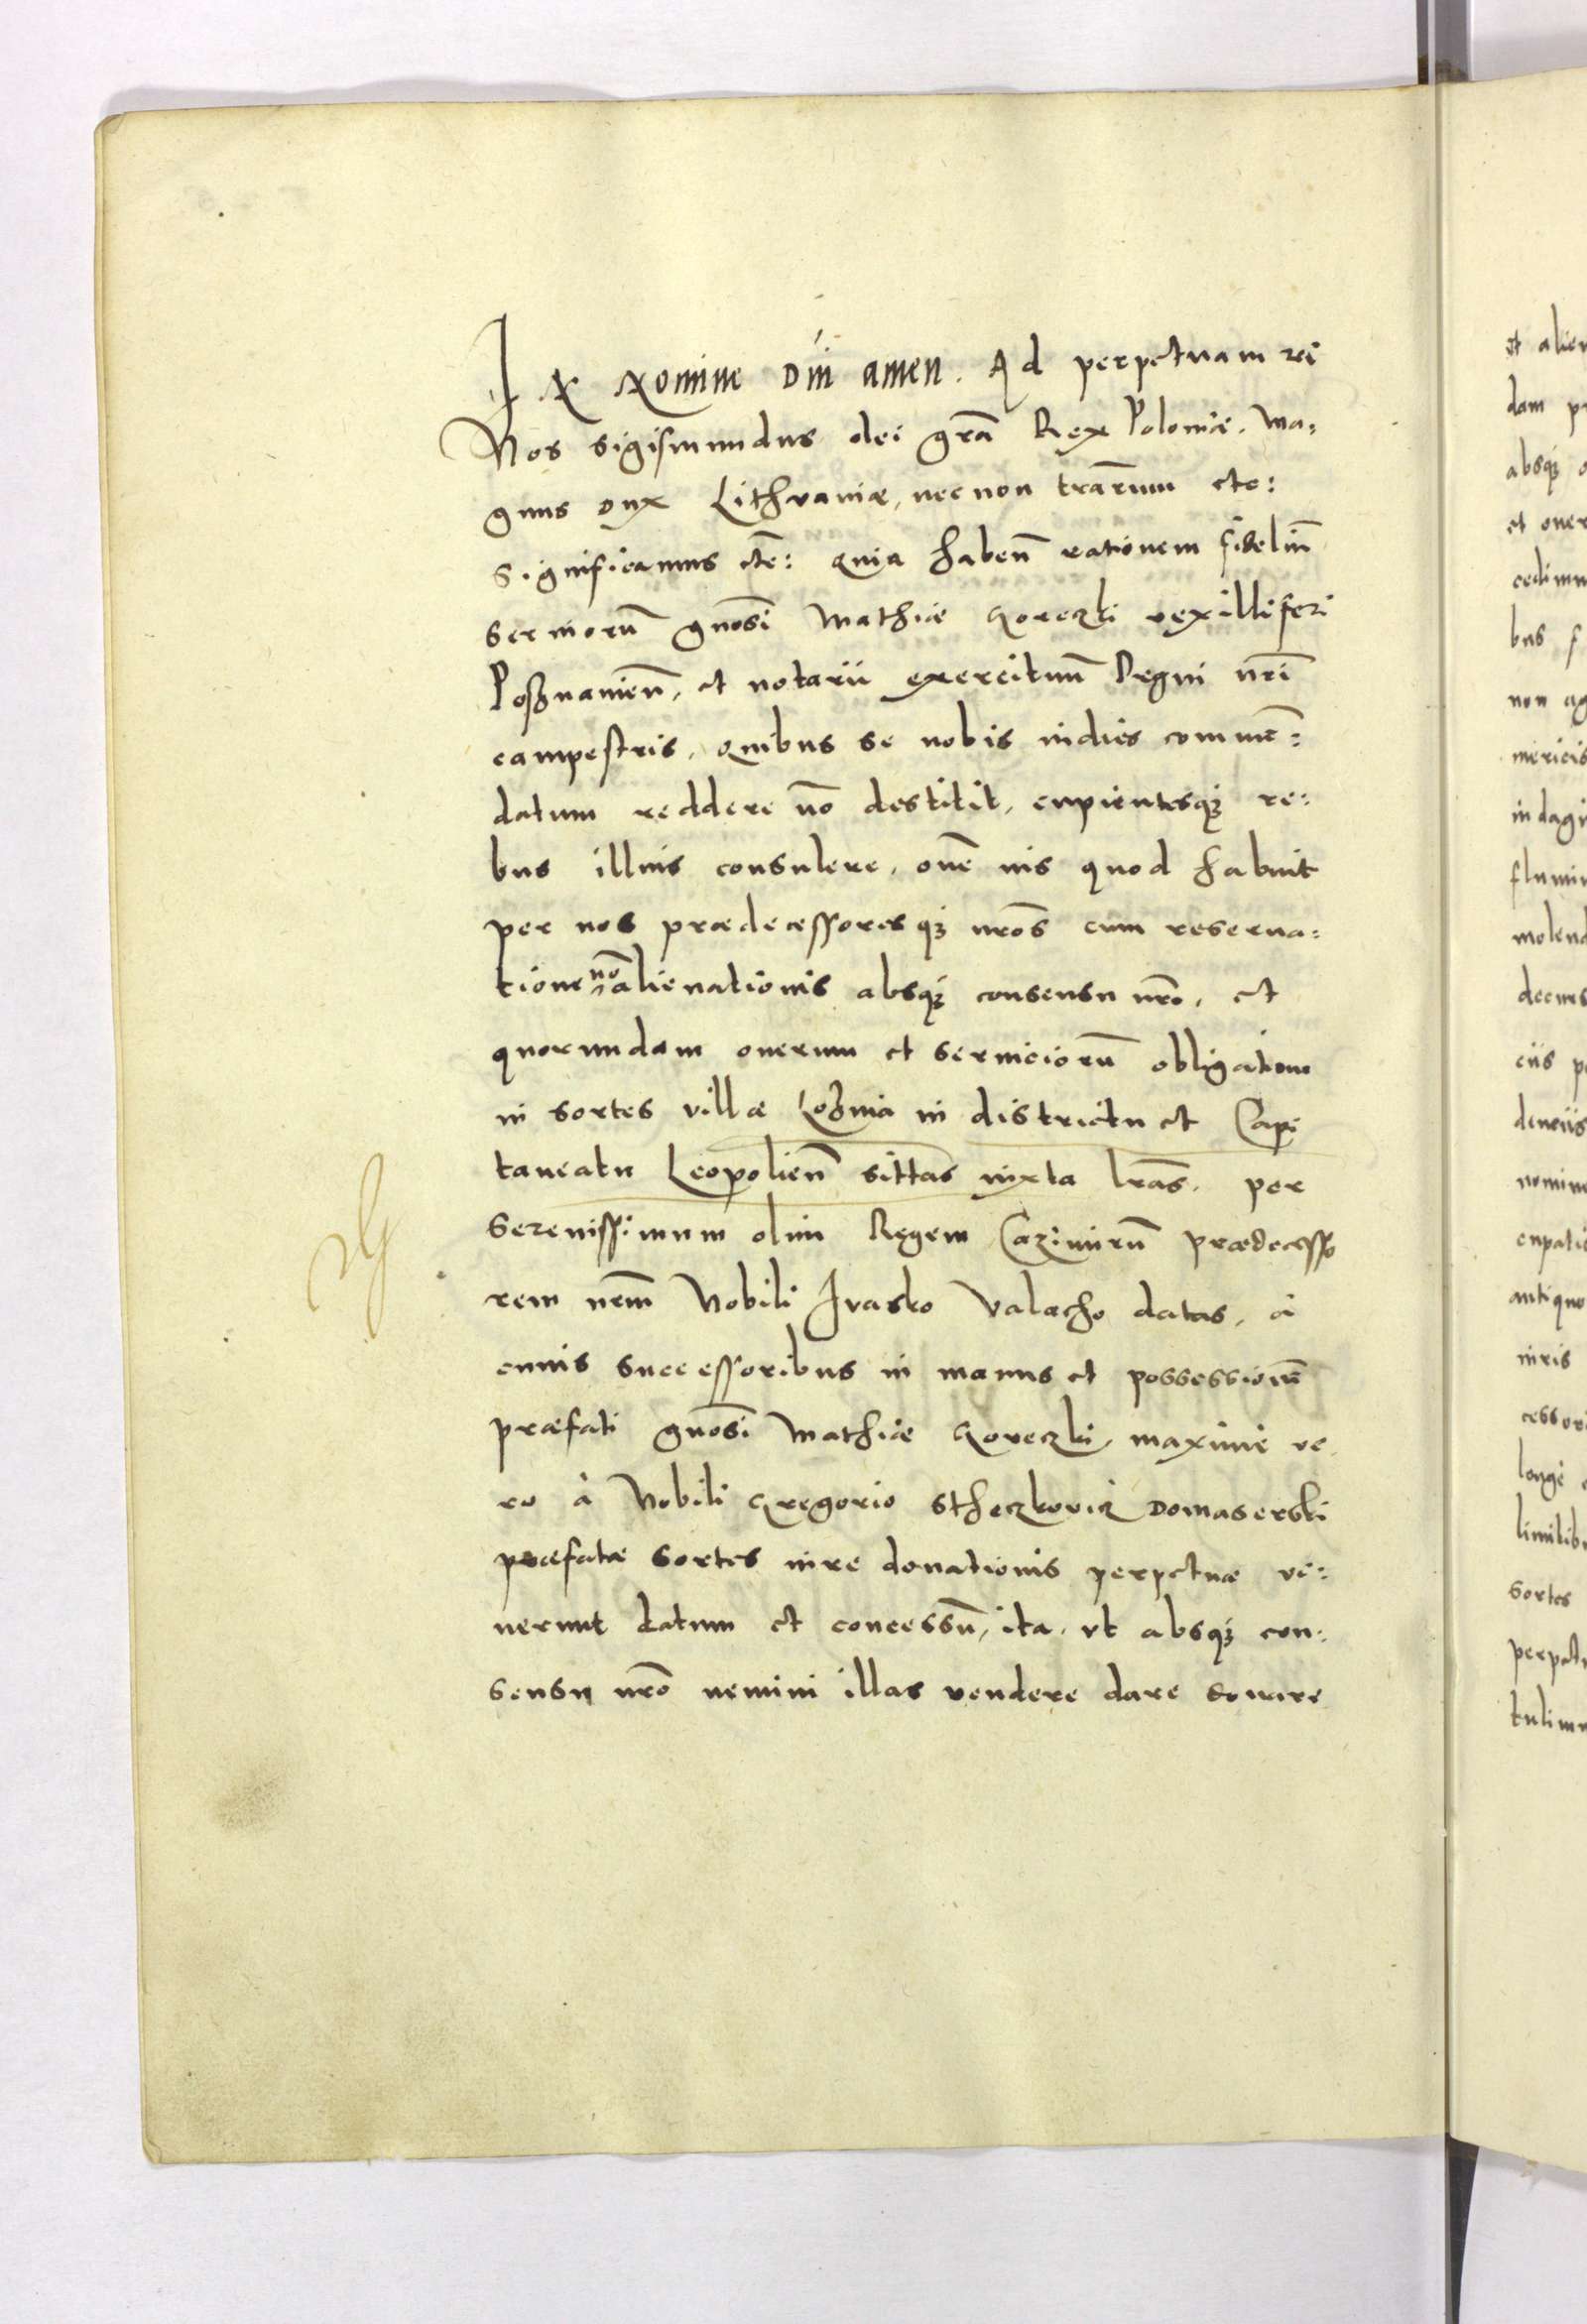 In Nomine Dni amen. Ad perpetuam rei
Nos Sigismundus dei gra Rex Poloniæ, ma=
gnus Dux Lithvaniæ, necnon trarum etc:
Significamus etc: Quia haben rationem fidelium
serviorum gnosi Mathiæ vexilliferi
Posznanien, et notarii exercituum Regni nri
campestris, quibus se nobis indies commen=
datum reddere no destitit, cupientesq re=
bus illius consulere, ome ius quod habuit
per nos prædecessoresq nros cum reserua=
tione no alienationis absq consensu nro, et
quorundam onerum et seruiciorum obligatione
in sortes villæ in districtu et Capi
taneatu Leopolien sittas iuxta lras, per
Serenissimum olim Regem Cazimirum prædecesso
rem nrm Nobili Ivasko Valacho datas, à
cuius successoribus in manus et possessionem
præfati gnosi Mathiæ maxime ve
ro à Nobili Gregorio Stheczkovicz Domaserski
præfatæ sortes iure donationis perpetuæ ve=
nerunt datum et concessum, ita, vt absq con=
sensu nro nemini illas vendere dare donare
et alien
dam pr
absq
et oner
cedimu
bus f
non ag
mericis
indagi
flumin
molend
decurs
ciis p
nomin
antiquo
iuris
cessori
longe
limitibu
sortes
perpetu
tulimu